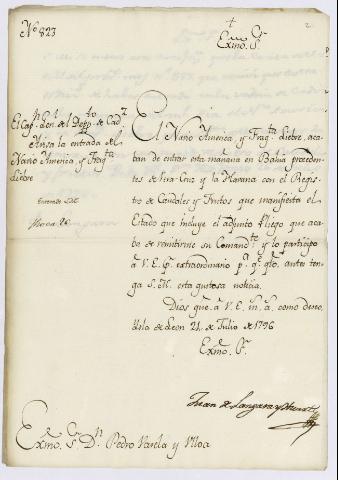 Nº 823
2
+
Exmo. Sr.
El Capn. Genl. del Depto. de Cadz.
Avisa la entrada del
Navio America y Fragta.
Liebre
El Navio America, y Fragta. Liebre, aca-
ban de entrar esta mañana en Bahia procedentes
de Vera-Cruz y la Havana con el Regis-
tro de Caudales y Frutos que manifiesta el
Estado que incluye el adjunto Pliego que aca-
ba de remitirme su Comandte. y lo participo
à V. E. pr. extraordinario pa. qe. qto. antes ten-
ga S. M. esta gustosa noticia.
Dios gue. à V. E. ms. as. como deseo.
Isla de Leon 21 de Julio de 1796
Exmo. Sr.
Juan de Langara y Huarte
Exmo. Sr. Dn. Pedro Varela y Ulloa